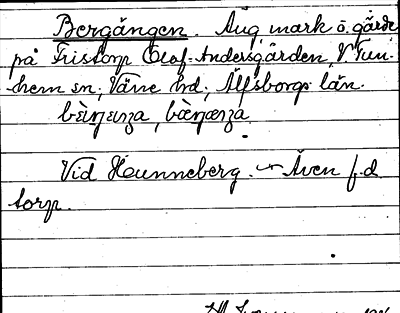 Bergängen. Äng, mark o. gärde
på Fristorp Olof-Andersgården, V. Tun-
hem sn, Väne hd, Älfsborgs län.
Vid Hunneberg. – Även f.d.
torp.